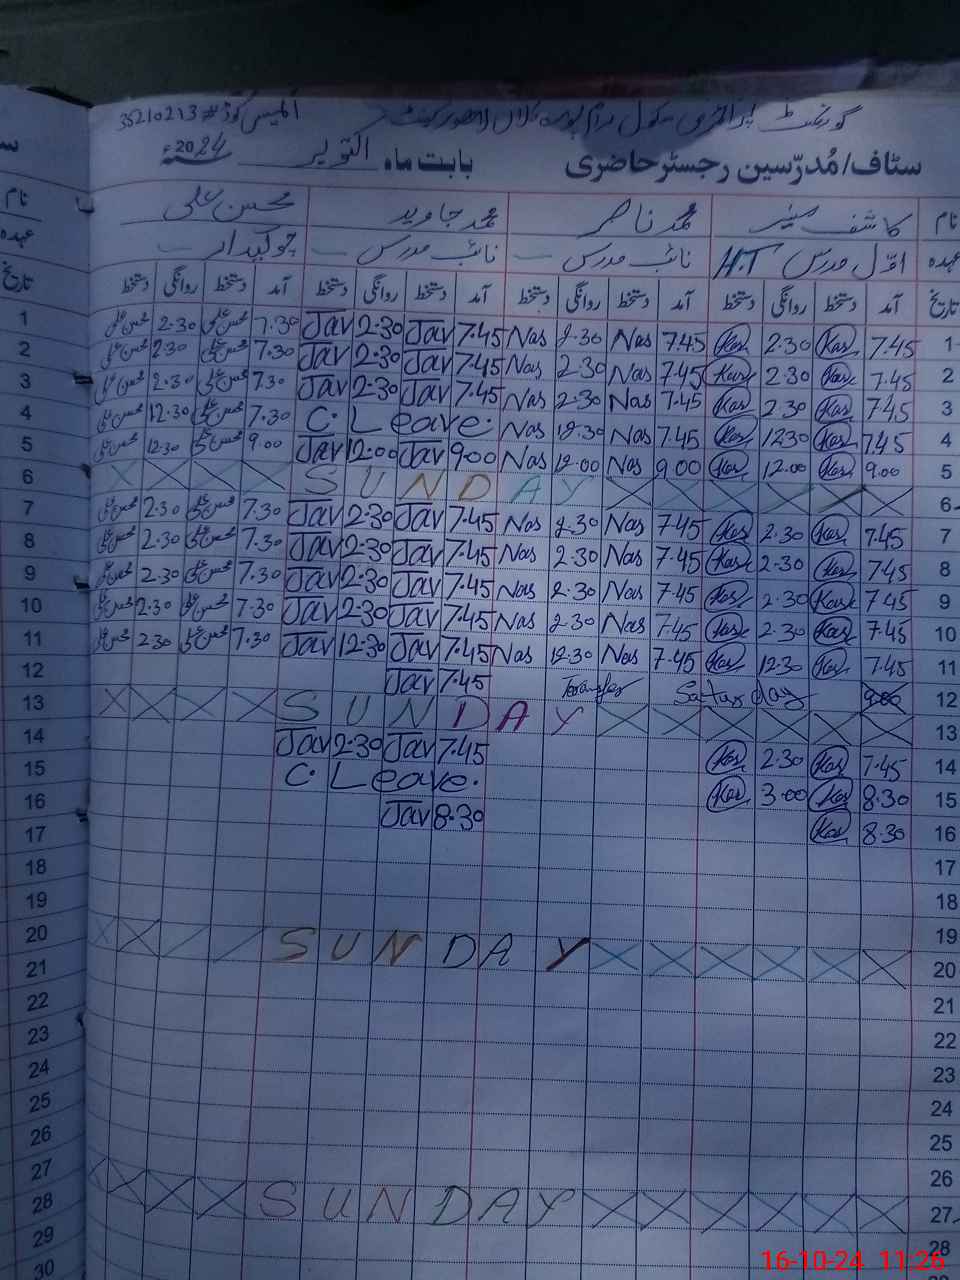 گورنمنٹ پرائمری سکول لاہور کینٹ ایمیس کوڈ # 35210213
سٹاف/مُدرّسین رجسٹر حاضری بابت ماہ اکتوبر 2024ء
نام کاشف محمد ناصر محمد جاوید محسن علی
عہدہ اوّل مدرس H.T نائب مدرس نائب مدرس چوکیدار
تاریخ آمد دستخط روانگی دستخط آمد دستخط روانگی دستخط آمد دستخط روانگی دستخط آمد دستخط روانگی دستخط
1 7.45 Kas 2.30 Kas 7.45 Nas 2.30 Nas 7.45 Jav 2.30 Jav 7.30 محسن علی 2.30 محسن علی 1
2 7.45 Kas 2.30 Kas 7.45 Nas 2.30 Nas 7.45 Jav 2.30 Jav 7.30 محسن علی 2.30 محسن علی 2
3 7.45 Kas 2.30 Kas 7.45 Nas 2.30 Nas 7.45 Jav 2.30 Jav 7.30 محسن علی 2.30 محسن علی 3
4 7.45 Kas 12.30 Kas 7.45 Nas 12.30 Nas C. Leave. 7.30 محسن علی 12.30 محسن علی 4
5 9.00 Kas 12.00 Kas 9.00 Nas 12.00 Nas 9.00 Jav 12.00 Jav 9.00 محسن علی 12.30 محسن علی 5
6 SUNDAY 6
7 7.45 Kas 2.30 Kas 7.45 Nas 2.30 Nas 7.45 Jav 2.30 Jav 7.30 محسن علی 2.30 محسن علی 7
8 7.45 Kas 2.30 Kas 7.45 Nas 2.30 Nas 7.45 Jav 2.30 Jav 7.30 محسن علی 2.30 محسن علی 8
9 7.45 Kas 2.30 Kas 7.45 Nas 2.30 Nas 7.45 Jav 2.30 Jav 7.30 محسن علی 2.30 محسن علی 9
10 7.45 Kas 2.30 Kas 7.45 Nas 2.30 Nas 7.45 Jav 2.30 Jav 7.30 محسن علی 2.30 محسن علی 10
11 7.45 Kas 12.30 Kas 7.45 Nas 12.30 Nas 7.45 Jav 12.30 Jav 7.30 محسن علی 2.30 محسن علی 11
12 9.00 Saturday Transfer 7.45 Jav 12
13 SUNDAY 13
14 7.45 Kas 2.30 Kas 7.45 Jav 2.30 Jav 14
15 8.30 Kas 3.00 Kas C. Leave. 15
16 8.30 Kas 8.30 Jav 16
17 17
18 18
19 19
20 SUNDAY 20
21 21
22 22
23 23
24 24
25 25
26 26
27 SUNDAY 27
28 28
29
30
16-10-24 11:26
نام
عہدہ
تاریخ